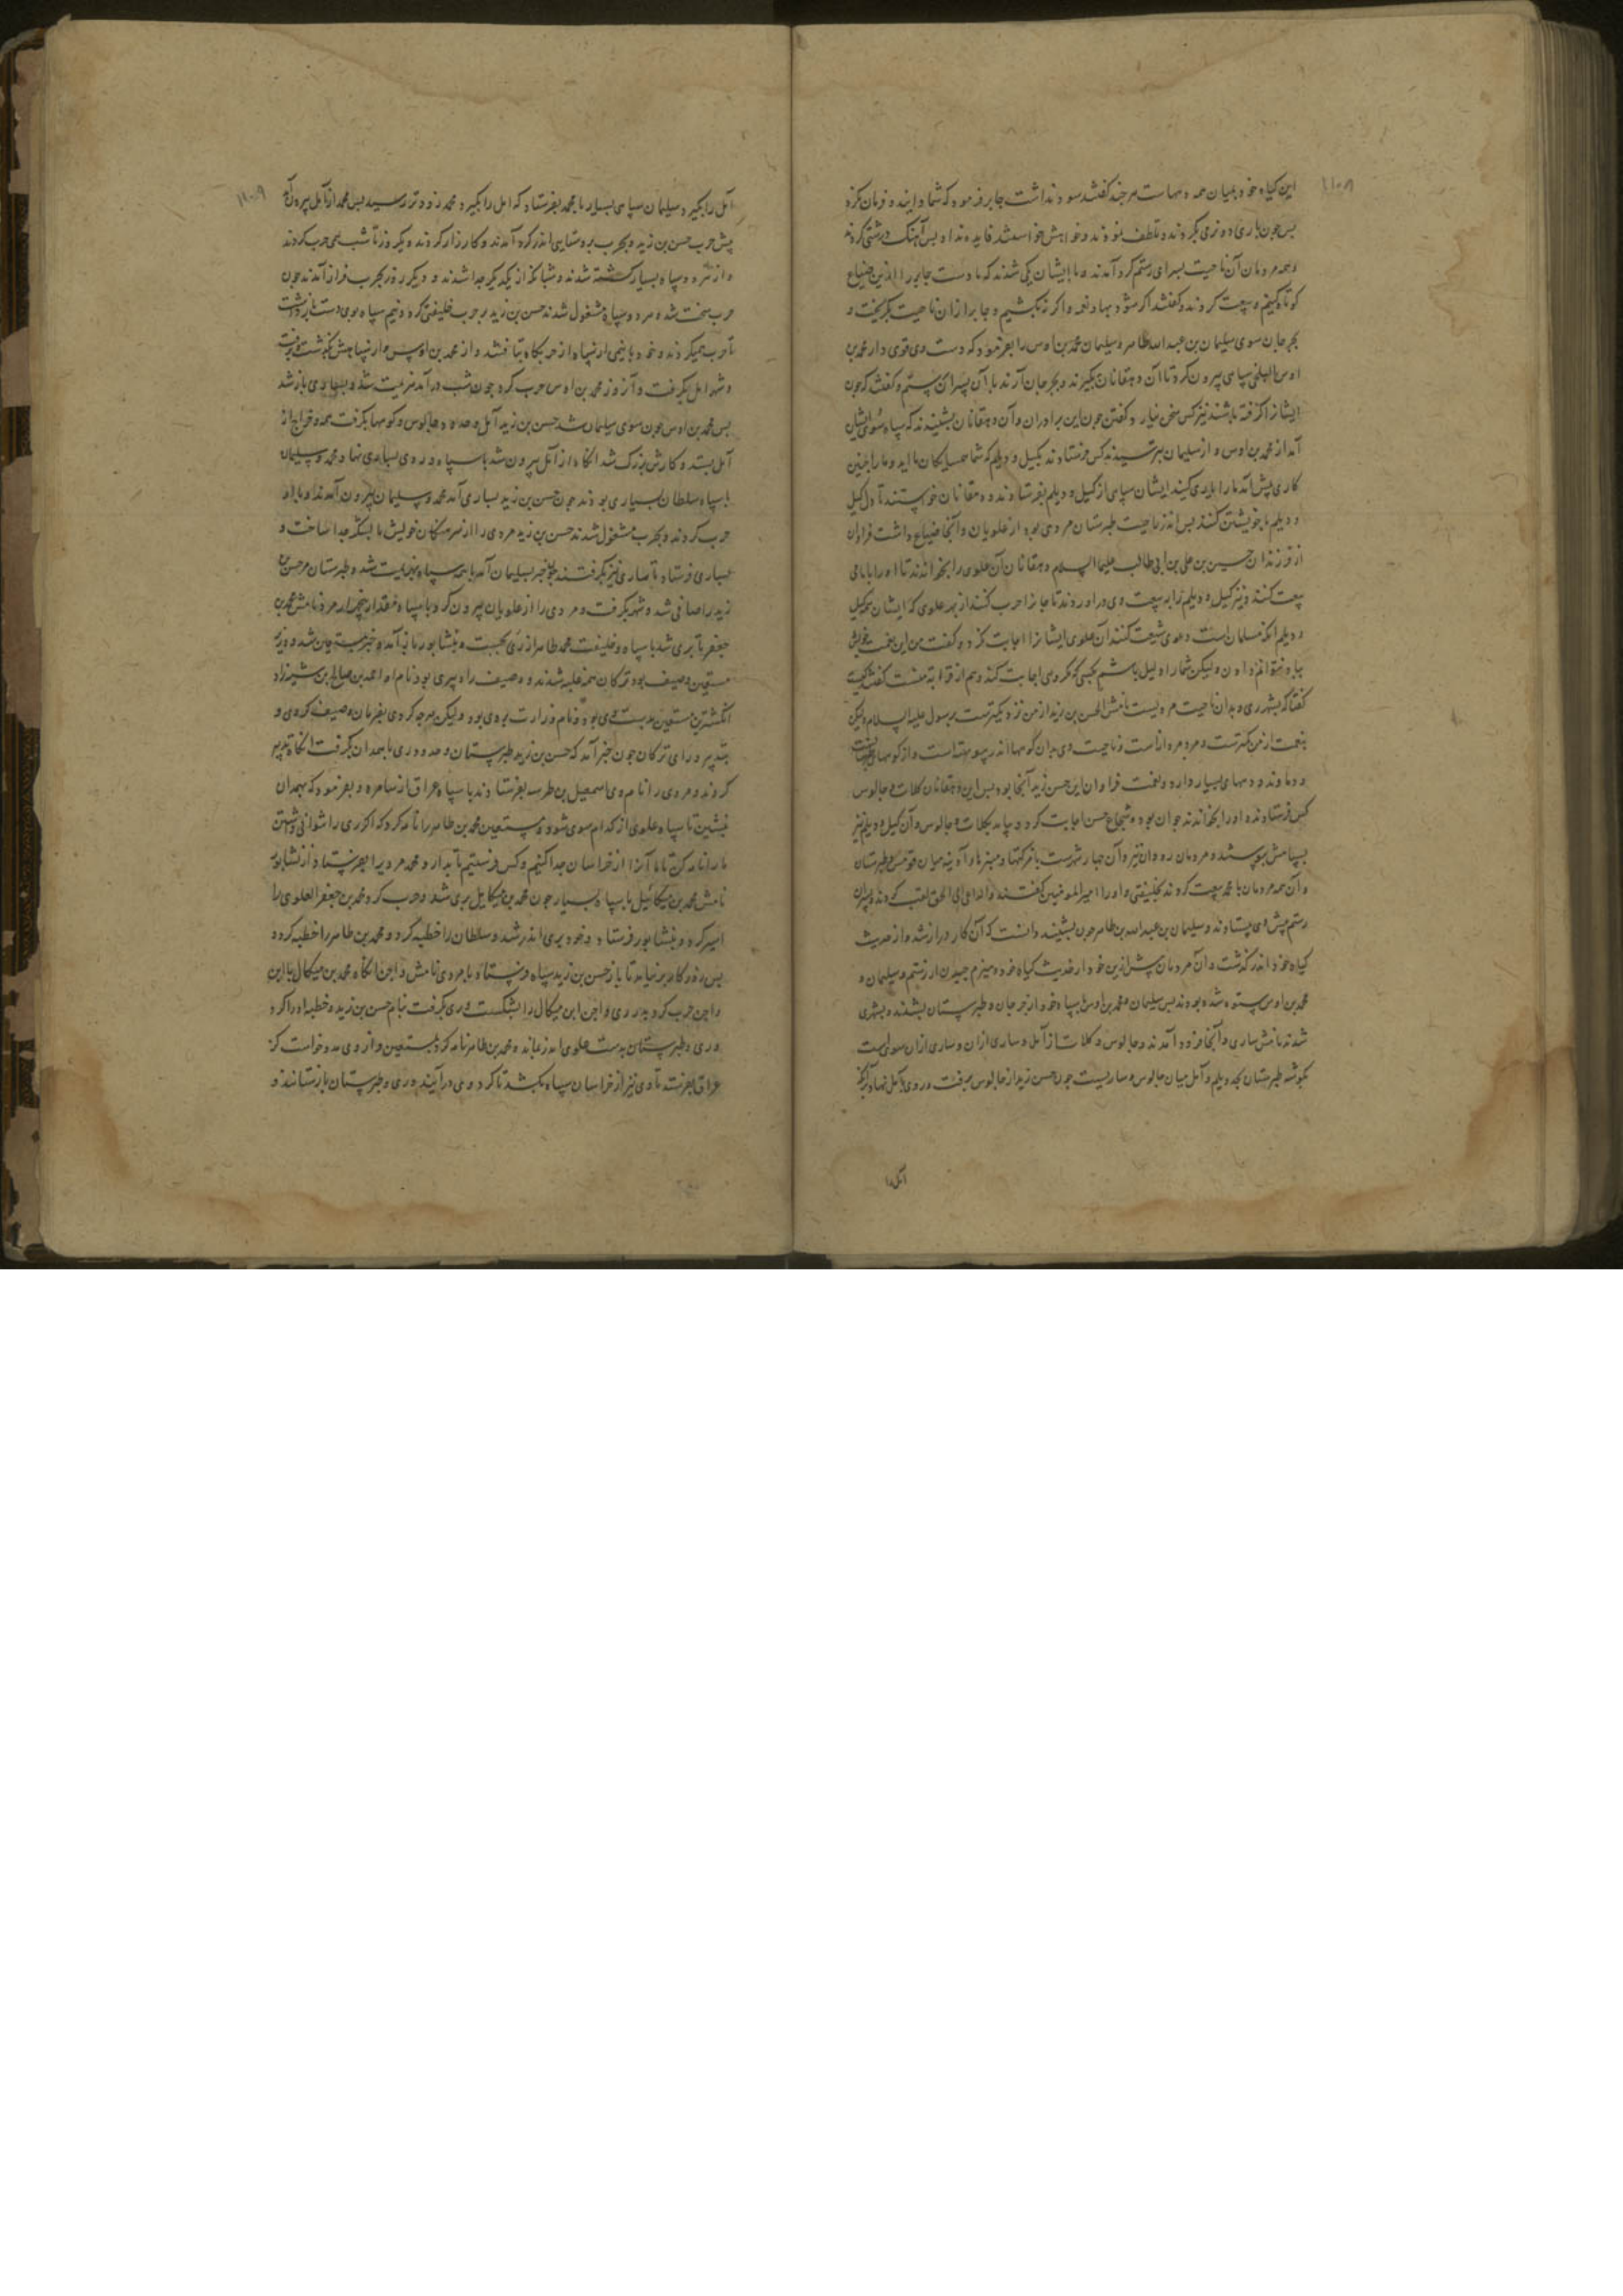 ۱۱۰۸
این کیاه خود بمیان همه دههاست هر چند کفتند سود نداشت جابر فرمود که شما دانید و فرمان نکرد
بس جون یاری و نرمی بکردند و تلطف نمودند و خواهش خواستند فایده نداد بس آهنک درشتی کردند
و همه مردمان آن ناحیت بسرای رستم کرد آمدند و با ایشان یکی شدند که ما دست جابر را ازین ضیاع
کوتاه کنیم و بیعت کردند و کفتند اکر بشود بها و نعم و اکر نه بکشیم و جابر از آن ناحیت بکریخت و
بجرجان سوی سلیمان بن عبدالله طاهر و سلیمان محمد بن اوس را بفرمود که دست وی قوی دار محمد بن
اوس البلخی سپاهی بیرون کرد تا آن دهقانان بکیرند و بجرجان آرند با آن پسران رستم و کفتند که جون
ایشانرا کرفته باشند نیز کس سخن نیارد کفتن جون این برادران و آن دهقانان بشنیدند که سپاه سوی ایشان
آمد از محمد بن اوس و از سلیمان بترسیدند کس فرستادند بکیل و دیلم که شما همسایکان مااید و ما را جنین
کاری پیش آمد ما را یاری کنید ایشان سپاهی از کیل و دیلم بفرستادند و دهقانان خواستند تا دل کیل
و دیلم با خویشتن کنند بس اندر ناحیت طبرستان مردی بود از علویان و آنجا ضیاع داشت فراوان
از فرزندان حسین بن علی بن ابی طالب علیهما السلام دهقانان آن علوی را بخواندند تا او را بامامی
بیعت کنند و نیز کیل و دیلم را به بیعت وی در آورند تا جابر را حرب کنند از بهر علوی که ایشان بکیل
و دیلم آنکه مسلمان است دعوی شیعت کنند آن علوی ایشانرا اجابت نکرد و کفت من این نعمت خویش
بباد نتوانم دادن ولیکن شما را دلیل باشم بکسی که مکر وی اجابت کند و هم از قرابت منست کفتند کیست
کفتا که بشهر ری و بدان ناحیت مردیست نامش الحسن بن زید از من نزدیکترست برسول علیه السلام ولیکن
بنعمت از من کمترست و مردم را
و دماوند و دهها بسیار دارد و نعمت فراوان این حسن زید آنجا بود بس این دهقانان کلات و جالوس
کس فرستادند و او را بخواندند جوان بود و شجاع حسن اجابت کرد و بیامد بکلات و جالوس و آن کیل و دیلم نیز
و آن همه مردمان با محمد بیعت کردند بخلیفتی و او را امیر المومنین کفتند و الداعی الی الحق لقب کردند و پسران
رستم پیش وی بیستادند و سلیمان بن عبدالله بن طاهر جون بشنید دانست که آن کار دراز شد و از حدیث
کیاه خود اندر کذشت و آن مردمان
محمد بن اوس ستوه شده بودند بس سلیمان و محمد بن اوس با سپاه خود از جرجان و طبرستان بشدند و بشهری
شدند نامش ساری و آنجا فرود آمدند و جالوس و کلات از آمل و ساری ازان و ساری ازان سوی است
بکوشه طبرستان بحد دیلم و آمل میان جالوس و ساریست جون حسن زید از جالوس برفت و روی بآمل نهاد
آمل را
۱۱۰۹
آمل را بکیرد و سلیمان سپاهی بسیار با محمد بفرستاد که آمل را بکیرد و محمد زودتر رسید بس محمد از آمل بیرون آمد
پیش حرب حسن بن زید و بحرب بروستایی اندر کرد آمدند و کارزار کردند و یک روز تا شب همی حرب کردند
و از هر دو سپاه بسیار کشته شدند و شبانکه از یکدیکر جدا شدند و دیکر روز بحرب فراز آمدند جون
حرب سخت شد و هر دو سپاه مشغول شدند حسن بن زید بر حرب خلیفتی کرد و نیم سپاه بوی دست باز داشت
تا حرب همیکردند و خود با نیمی از سپاه از حربکاه بتافتند و از محمد بن اوس
و شهر آمل بکرفت و آن روز محمد بن اوس حرب کرد جون شب در آمد هزیمت شد و بساری باز شد
بس محمد بن اوس جون سوی سلیمان شد حسن بن زید آمل و حدود جالوس و کوهها بکرفت همه و خراج از
آمل بستد و کارش بزرک شد آنکاه از آمل بیرون شد با سپاه و روی بساری نهاد و محمد و سلیمان
با سپاه سلطان بساری بودند جون حسن بن زید بساری آمد محمد و سلیمان بیرون آمدند و با او
حرب کردند و بحرب مشغول شدند حسن بن زید مردی را از سرهنکان خویش با لشکر جدا ساخت و
بساری فرستاد تا ساری نیز بکرفتند جون خبر بسلیمان آمد با همه سپاه بهزیمت شد و طبرستان مر حسن
زید را صافی شد و شهر بکرفت و مردی را از علویان بیرون کرد با سپاه مقدار پنج هزار مرد نامش محمد بن
جعفر تا بری شد با سپاه و خلیفت محمد طاهر از ری بجست و بنشابور باز آمد و خبر بمستعین شد و وزیر
مستعین وصیف بود ترکان همه غلبه شدند و وصیف را دبیری بود نام او احمد بن صالح بن شیرزاد
انکشترین مستعین بدست وی بود و نام وزارت بر وی بود ولیکن هرجه کردی بفرمان وصیف کردی و
بتدبیر و رای ترکان جون خبر آمد که حسن بن زید طبرستان و حدود ری تا بهمدان بکرفت آنکاه تدبیر
کردند و مردی را نام وی اسمعیل بن بفرستادند با سپاه عراق از سامره و بفرمود که بهمدان
بنشین تا سپاه علوی از کدام سوی شود و مستعین محمد بن طاهر را نامه کرد که اکر ری را
ما را نامه کن تا ما آنرا از خراسان جدا کنیم و کس فرستیم تا بدارد و محمد مردی را بفرستاد از نشابور
نامش محمد بن میکائیل با سپاه بسیار جون محمد بن میکائیل بری شد و حرب کرد و محمد بن جعفر العلوی را
اسیر کرد و بنشابور فرستاد و خود بری اندر شد و سلطان را خطبه کرد و محمد بن طاهر را خطبه کرد و
بس روزکار بر نیامد تا باز حسن بن زید سپاه فرستاد با مردی نامش واجن آنکاه محمد بن میکال با این
واجن حرب کرد بدر ری و واجن ابن میکال را بشکست و ری بکرفت بنام حسن بن زید و خطبه او را کرد
و ری و طبرستان بدست علوی اندر بماند و محمد بن طاهر نامه کرد بمستعین و از وی مدد خواست که از
عراق بفرستد تا وی نیز از خراسان سپاه بکشد تا کرد وی در آیند و ری و طبرستان باز ستانند و